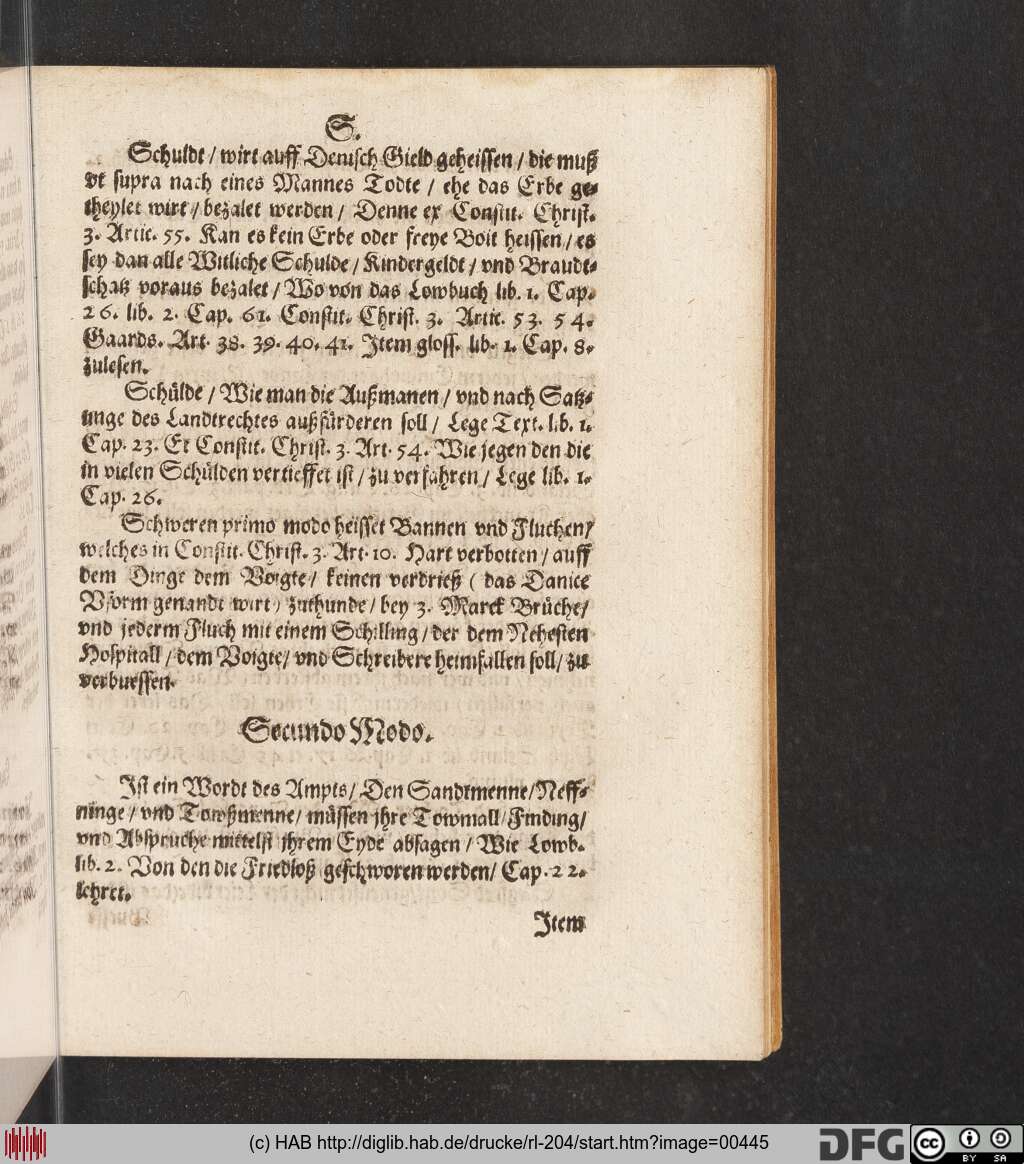 S.
Schuldt / wirt auff Denisch Gield geheissen / die muß
vt supra nach eines Mannes Todte / ehe das Erbe ge-
theylet wirt / bezalet werden / Denne ex Constit. Christ.
3. Artic. 55. Kan es kein Erbe oder freye Boit heissen / es
sey dan alle Witliche Schulde / Kindergeldt / vnd Braudt-
schatz voraus bezalet / Wo von das Lowbuch lib. 1. Cap.
26. lib. 2. Cap. 61. Constit. Christ. 3. Artic. 53. 54.
Gaards. Art. 38. 39. 40. 41. Item gloss. lib. 1. Cap. 8.
zulesen.
Schülde / Wie man die Außmanen / vnd nach Satz-
unge des Landtrechtes außfürderen soll / Lege Text. lib. 1.
Cap. 23. Et Constit. Christ. 3. Art. 54. Wie jegen den die
in vielen Schülden vertieffet ist / zu verfahren / Lege lib. 1.
Cap. 26.
Schweren primo modo heisset Bannen vnd Fluchen /
welches in Constit. Christ. 3. Art. 10. Hart verbotten / auff
dem Dinge dem Voigte / keinen verdrieß ( das Danice
Vform genandt wirt ) zuthunde / bey 3. Marck Brüche /
vnd jederm Fluch mit einem Schilling / der dem Nehesten
Hospitall / dem Voigte / vnd Schreibere heimfallen soll / zu
verbuessen.
Secundo Modo.
Ist ein Wordt des Ampts / Den Sandtmenne / Neff-
ninge / vnd Towßmenne / müssen jhre Towmall / Finding /
vnd Abspruche mittelst jhrem Eyde absagen / Wie Lowb.
lib. 2. Von den die Friedloß geschworen werden / Cap. 22.
lehret.
Item
(c) HAB http://diglib.hab.de/drucke/rl-204/start.htm?image=00445
DFG
cc
BY SA